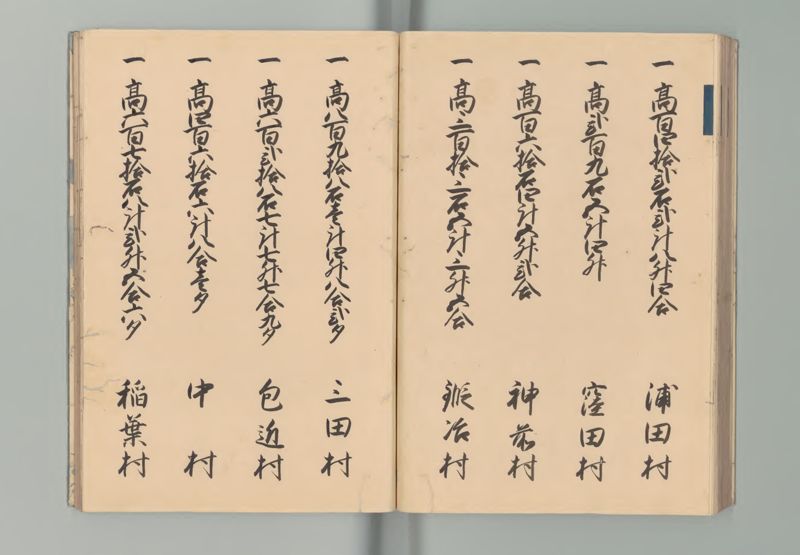 一 高百四拾弐石弐斗八升四合 浦田村
一 高弐百九石五斗四升 窪田村
一 高百六拾石四斗五升弐合 神前村
一 高三百拾三石五斗三升五合 鍛冶村
一 高八百九拾八石壱斗四升八合弐夕 三田村
一 高六百弐拾八石七斗七升七合九夕 包近村
一 高四百六拾石六斗八合壱夕 中村
一 高六百七拾石八斗弐升五合六夕 稲葉村